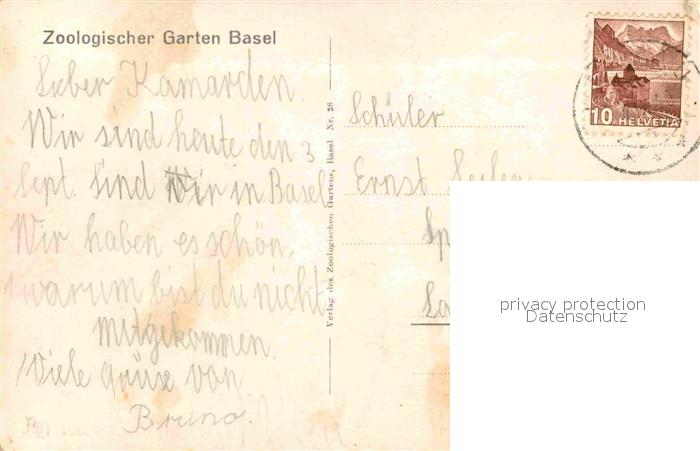 Zoologischer Garten Basel
Lieber Kamarden
Wir sind heute den 3
Sept. Sind Wir in Basel
Wir haben es schön,
warum bist du nicht
mitgekommen.
Viele grüse von
Bruno.
Verlag des Zoologischen Gartens, Basel Nr. 28
Schüler
Ernst
10 HELVETIA
privacy protection
Datenschutz